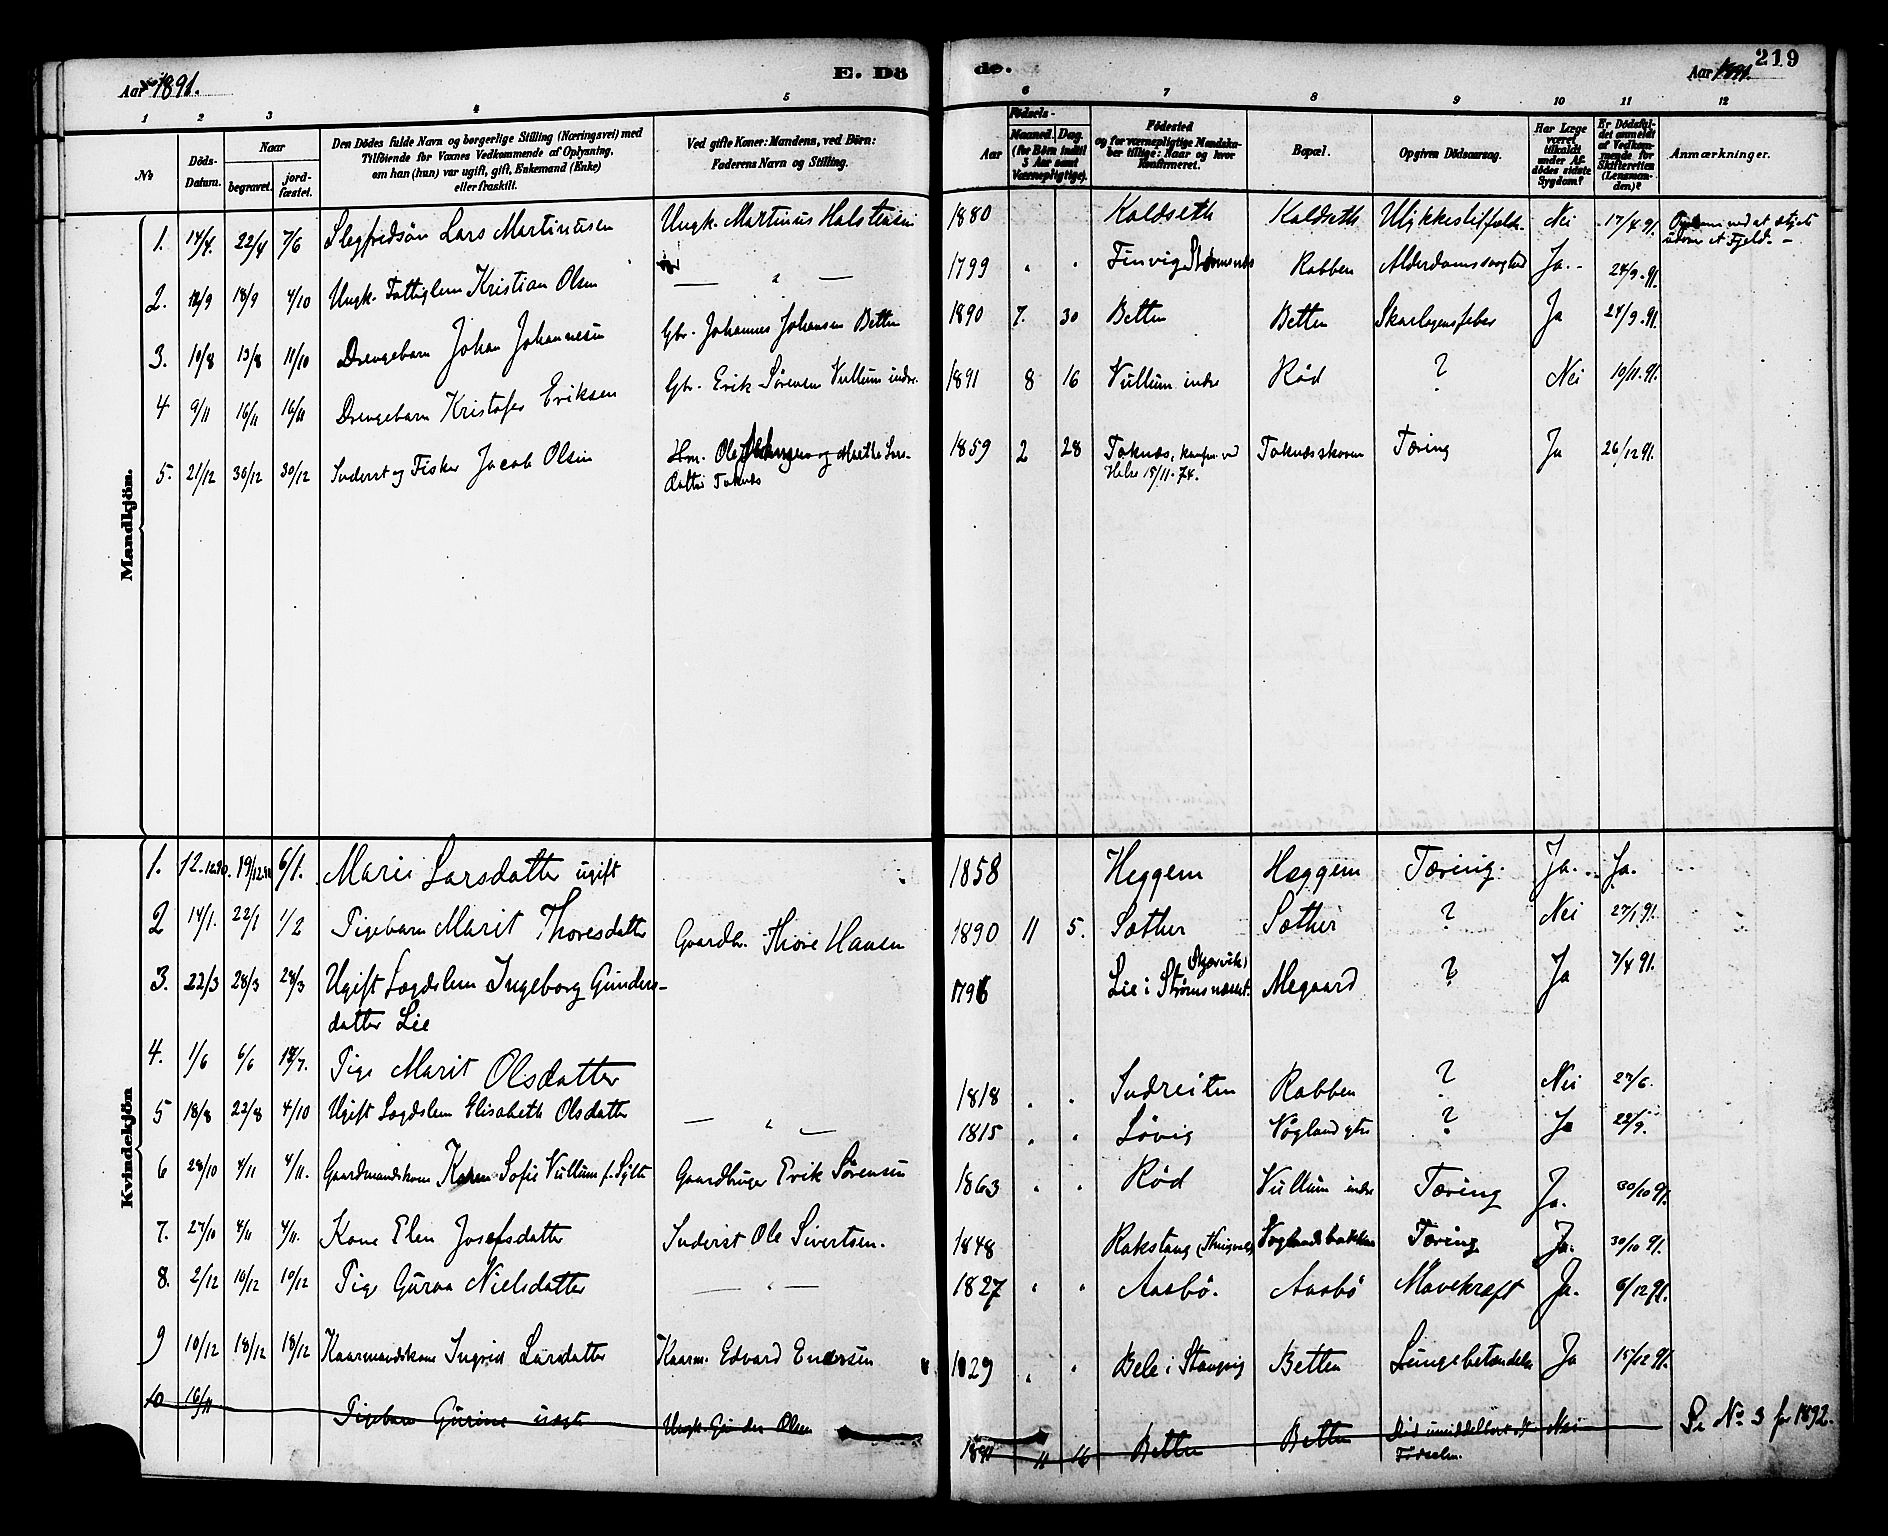 Aar 1891.
E. Dö
de.
Aar 1891.
219
1 2 3 4 5 6 7 8 9 10 11 12
No
Döds-Datum.
Naar
begravet.
jord-fæstet.
Den Dödes fulde Navn og borgerlige Stilling (Næringsvei) med
Tilföiende for Voxnes Vedkommende af Oplysning,
om han (hun) var ugift, gift, Enkemand (Enke)
eller fraskilt.
Ved gifte Koner: Mandens, ved Börn:
Faderens Navn og Stilling.
Födsels-
Aar
Maaned. Dag.
(for Börn indtil
3 Aar samt
Værnepligtige).
Födested
og for værnepligtige Mandska-
ber tillige: Naar og hvor
Konfirmeret.
Bopæl.
Opgiven Dödsaarsag.
Har Læge
været
tilkaldt
under Af-
dödes sidste
Sygdom?
Er Dödsfal-
det anmeldt
af Vedkom-
mende for
Skifteretten
(Lensman-
den)?
Anmærkninger.
Mandkjön.
1. 14/4. 22/4 7/6 Slegfredsøn Lars Martinusen Ungk. Martinus Halstensen 1880 Koldseth Koldseth Ulykkestilfælde. Nei 17/4 91. ved at styrte
udover et Fjeld. –
2. 12/9 18/9 4/10 Ungk. Fattiglem Kristian Olsen — " — 1799 " " Finvig Robben Alderdomssvaghed Ja. 24/9 91.
3. 10/8 13/8 11/10 Drengebarn Johan Johannesen Gbr. Johannes Johansen Betten 1890 7. 30 Betten Betten Skarlagensfeber Ja 24/9 91.
4 9/11 16/11 16/11 Drengebarn Kristofer Eriksen Gbr. Erik Sørensen Vullum indre. 1891 8 16 Vullum indre Rød ? Nei 10/11 91.
5. 21/12 30/12 30/12 Inderst og Fisker Jacob Olsen Hm. Ole og Marthe Lars-
datter Toknæs 1859 2 28 Toknæs, konfm. ved
Helse 15/11 – 74. Toknæsskoven Tæring Ja 26/12 91.
Kvindekjön
1. 12.12.90. 19/12.90 6/1. Marie Larsdatter ugift 1858 Heggem Heggem Tæring. Ja. Ja.
2 14/1. 22/1 1/2 Pigebarn Marit Thoresdatter Gaardbr. Thore Hansen 1890 11 5. Sæther Sæther ? Nei 27/1 91.
3. 22/3 28/3 28/3 Ugift Lægdslem Ingeborg Gunders-
datter Lie 1796 Lie i Strømsnæsset. Megaard ? Ja 7/4 91.
4. 1/6 6/6 12/7. Pige Marit Olsdatter 1818 " " Indreiten Robben ? Nei 27/6.
5 18/8 22/8 4/10 Ugift Lægdslem Elisabeth Olsdatter — " — 1815 " " Løvig Vogland ytre ? Ja 22/9.
6 28/10 4/11 4/11. Gaardmandskone Karen Sofie Vullum f. Sylte Gaardbruger Erik Sørensen 1863 " " Rød Vullum indre Tæring Ja. 30/10 91.
7. 27/10 4/11 4/11. Kone Elen Josefsdatter Inderst Ole Sivertsen. 1848 Rakstang Voglandsbakken Tæring Ja. 30/10 91.
8. 2/12 10/12 10/12 Pige Guroa Nielsdatter — " — 1827 " " Aasbø. Aasbø Mavekræft Ja. 6/12 91.
9 10/12 18/12 18/12 Kaarmandskone Ingrid Larsdatter Kaarm. Edvard Endersen 1829 " " Bele i Stangvig Betten Lungebetændelse Ja 15/12 91.
10 16/11 Pigebarn Gurine uægte Ungk. Gunder Olsen 1891 11 16 Betten Betten Død umiddelbart eft.
Fødselen. Nei Se No. 3 for 1892.